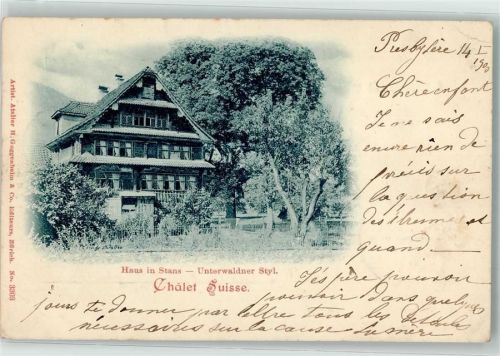 Presbytère 14 I
1900
Chère enfant
Je ne sais
encore rien de
précis sur
la question
des étrennes et
quand
J'espère pouvoir
pouvoir dans quelques
jours te donner par lettre tous les détails
nécessaires sur la cause
ta mère
Haus in Stans — Unterwaldner Styl.
Châlet Suisse.
Artist. Atelier H. Guggenheim & Co. Editeurs, Zürich. No. 3303